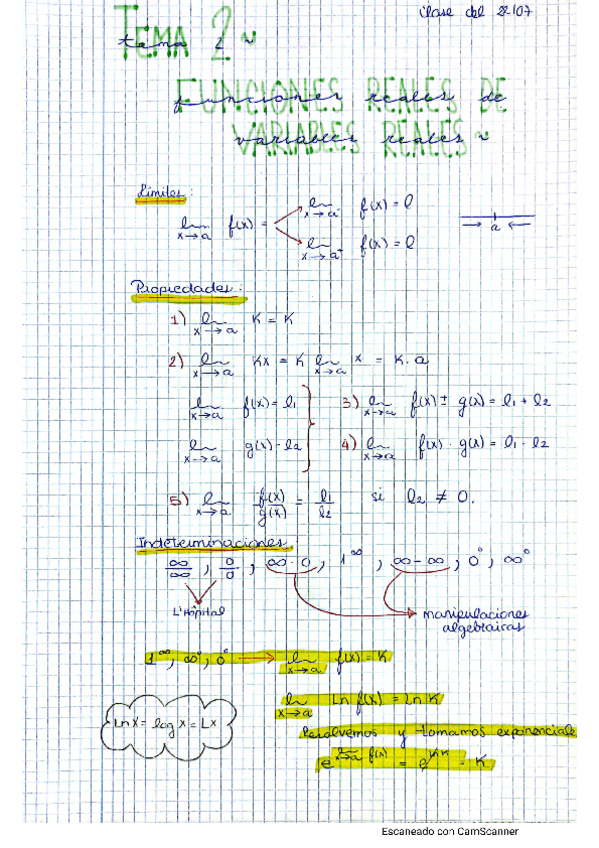 clase del 22/07
TEMA 2
tema 2
FUNCIONES REALES DE
funciones reales de
VARIABLES REALES
variables reales
Límites:
lim x→a f(x) =
lim x→a⁻ f(x) = l
lim x→a⁺ f(x) = l
→ a ←
Propiedades:
1) lim x→a K = K
2) lim x→a Kx = K lim x→a x = K·a
lim x→a f(x) = l1
lim x→a g(x) = l2
3) lim x→a f(x) ± g(x) = l1 + l2
4) lim x→a f(x) · g(x) = l1 · l2
5) lim x→a f(x)/g(x) = l1/l2 si l2 ≠ 0.
Indeterminaciones
∞/∞ , 0/0 , ∞·0 , 1^∞ , ∞-∞ , 0° , ∞°
L'Hôpital
manipulaciones
algebraicas
1^∞, ∞°, 0° → lim x→a f(x) = K
lim x→a Ln f(x) = Ln K
Ln x = log x = Lx
Resolvemos y tomamos exponencial
= K
Escaneado con CamScanner